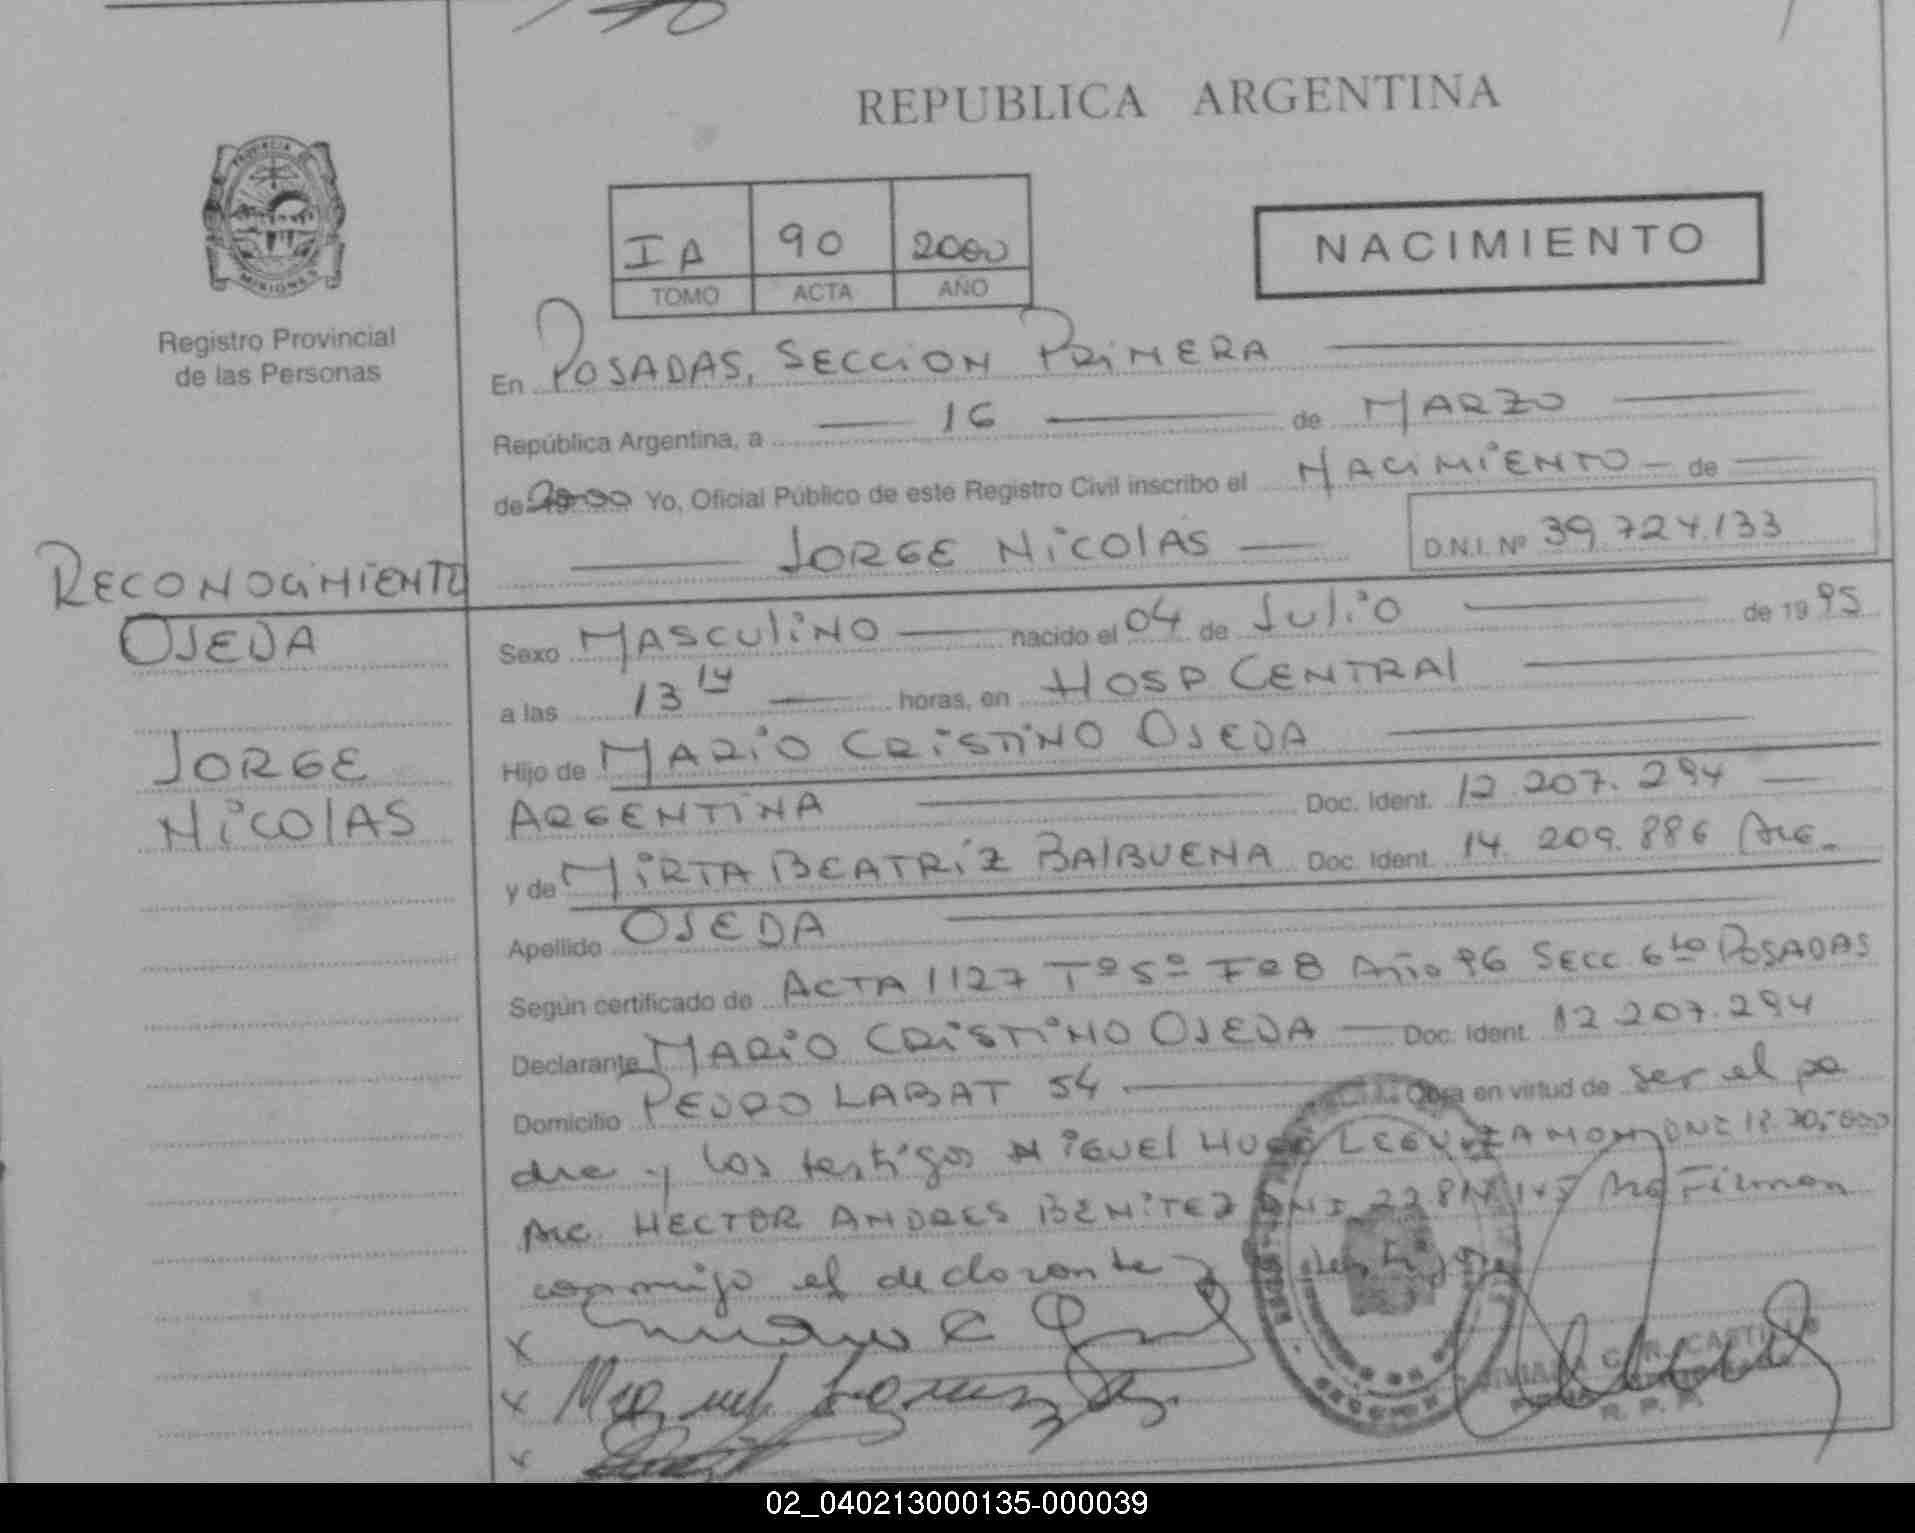 REPUBLICA ARGENTINA
PROVINCIA DE
MISIONES
Registro Provincial
de las Personas
IA 90 2000
TOMO ACTA AÑO
NACIMIENTO
En POSADAS, SECCION PRIMERA
República Argentina, a 16 de MARZO
de 2000 Yo, Oficial Público de este Registro Civil inscribo el NACIMIENTO de
JORGE NICOLAS D.N.I. Nº 39.724.133
RECONOCIMIENTO
OJEDA
JORGE
NICOLAS
Sexo MASCULINO nacido el 04 de Julio de 1995
a las 13 14 horas, en HOSP CENTRAL
Hijo de MARIO CRISTINO OJEDA
ARGENTINA Doc. Ident. 12.207.294
y de MIRTA BEATRIZ BALBUENA Doc. Ident. 14.209.886 ARG.
Apellido OJEDA
Según certificado de ACTA 1127 Tº 5º Fº 8 Año 96 SECC 6ta POSADAS
Declarante MARIO CRISTINO OJEDA Doc. Ident. 12.207.294
Domicilio PEDRO LABAT 54 Obra en virtud de ser el pa
dre y los testigos MIGUEL HUGO LEGUIZAMON DNI
Arg. HECTOR ANDRES BENITEZ DNI Arg Firman
conmigo el declarante y
R. P. P.
02_040213000135-000039